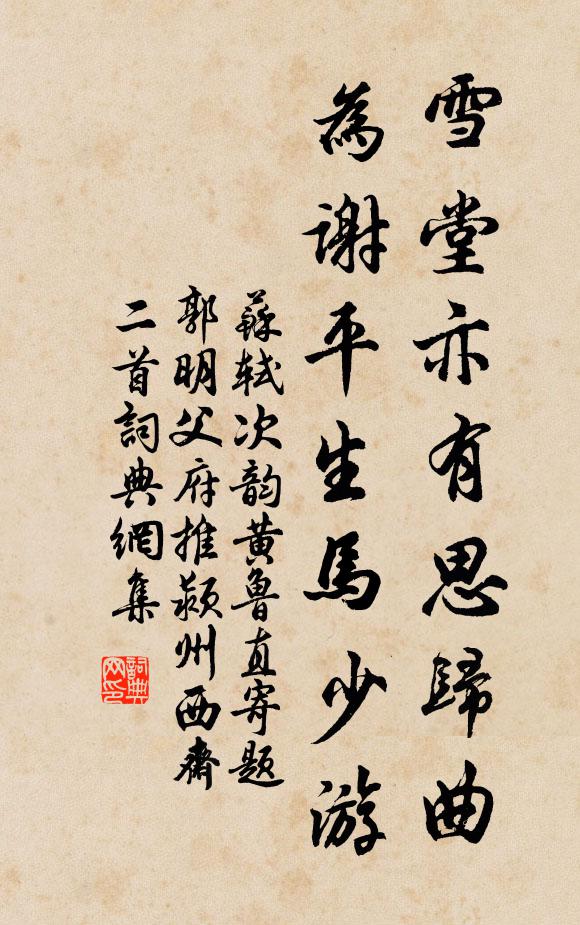 雪堂亦有思歸曲
為謝平生馬少游
蘇軾次韵黄魯直寄題
郭明父府推潁州西齋
二首詞典網集
詞典
网印